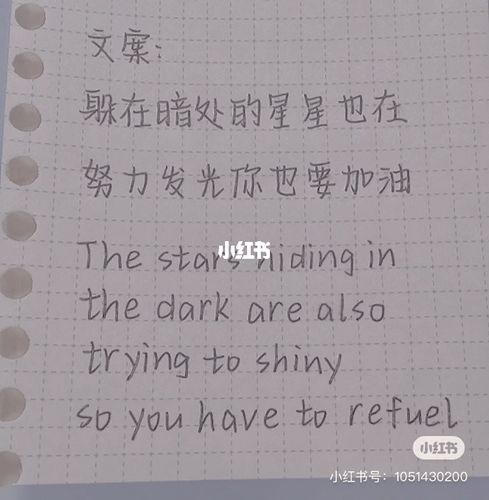 文案:
躲在暗处的星星也在
努力发光你也要加油
The stars hiding in
小红书
the dark are also
trying to shiny
so you have to refuel
小红书
小红书号: 1051430200